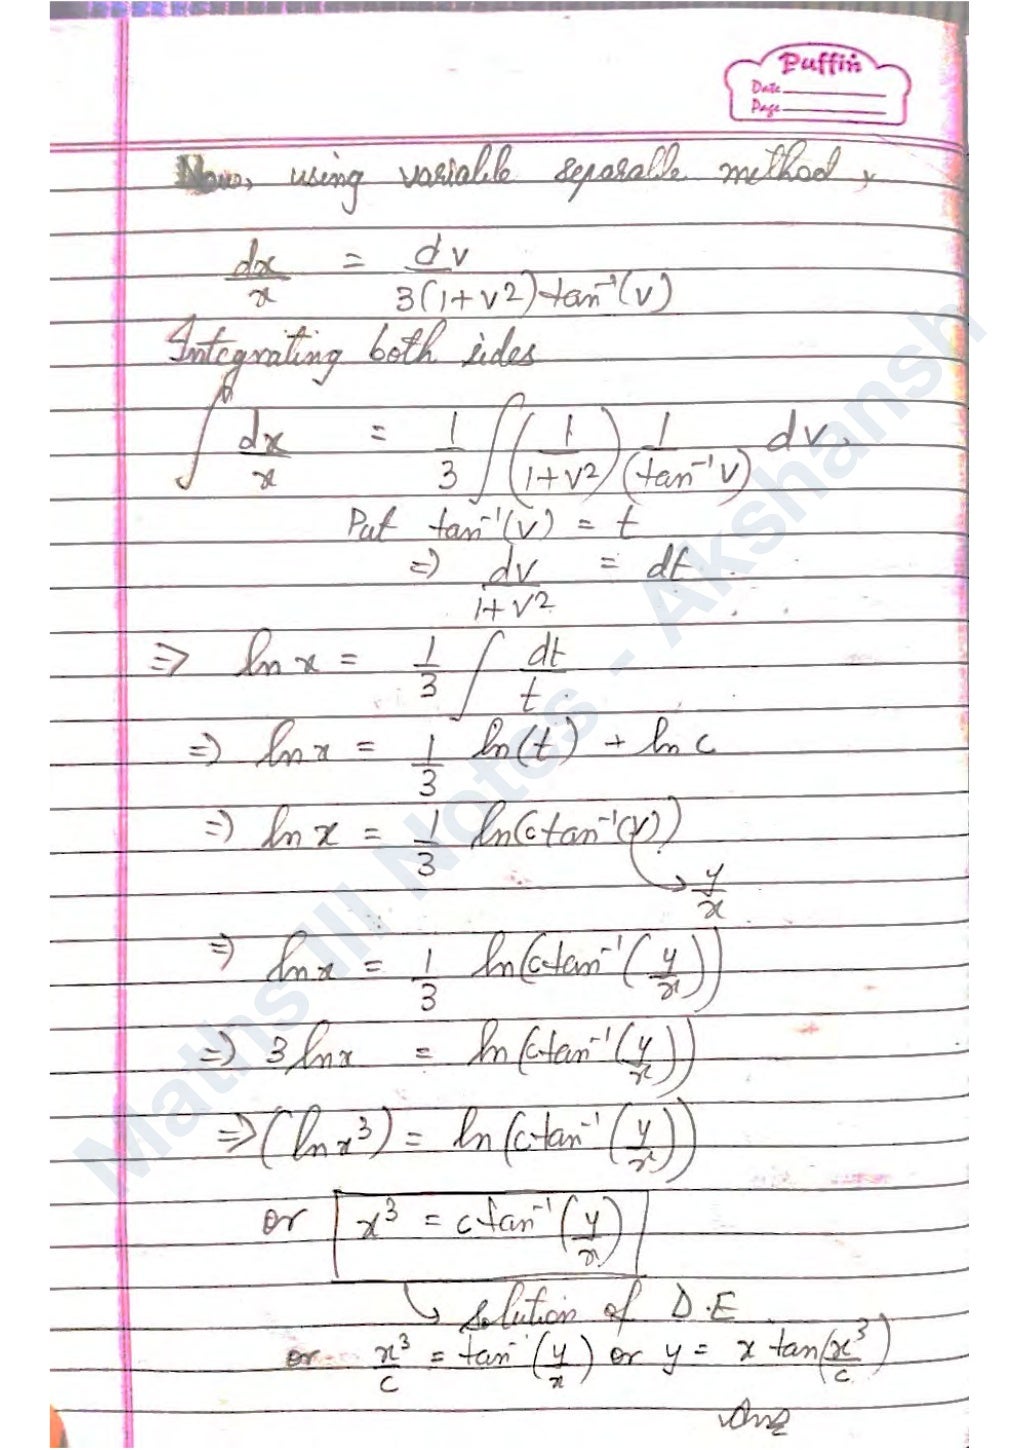 Puffin
Date
Page
Now, using variable separable method,
dx/x = dv/3(1+v²)tan⁻¹(v)
Integrating both sides
∫ dx/x = 1/3 ∫ (1/1+v²) 1/(tan⁻¹v) dv,
Put tan⁻¹(v) = t
⇒ dv/1+v² = dt
⇒ ln x = 1/3 ∫ dt/t
⇒ ln x = 1/3 ln(t) + ln c
⇒ ln x = 1/3 ln(c tan⁻¹(v))
y/x
⇒ ln x = 1/3 ln(c tan⁻¹(y/x))
⇒ 3 ln x = ln(c tan⁻¹(y/x))
⇒ (ln x³) = ln(c tan⁻¹(y/x))
or x³ = c tan⁻¹(y/x)
solution of D.E
or x³/c = tan⁻¹(y/x) or y = x tan(x³/c)
Ans
Maths III Notes - Akshansh